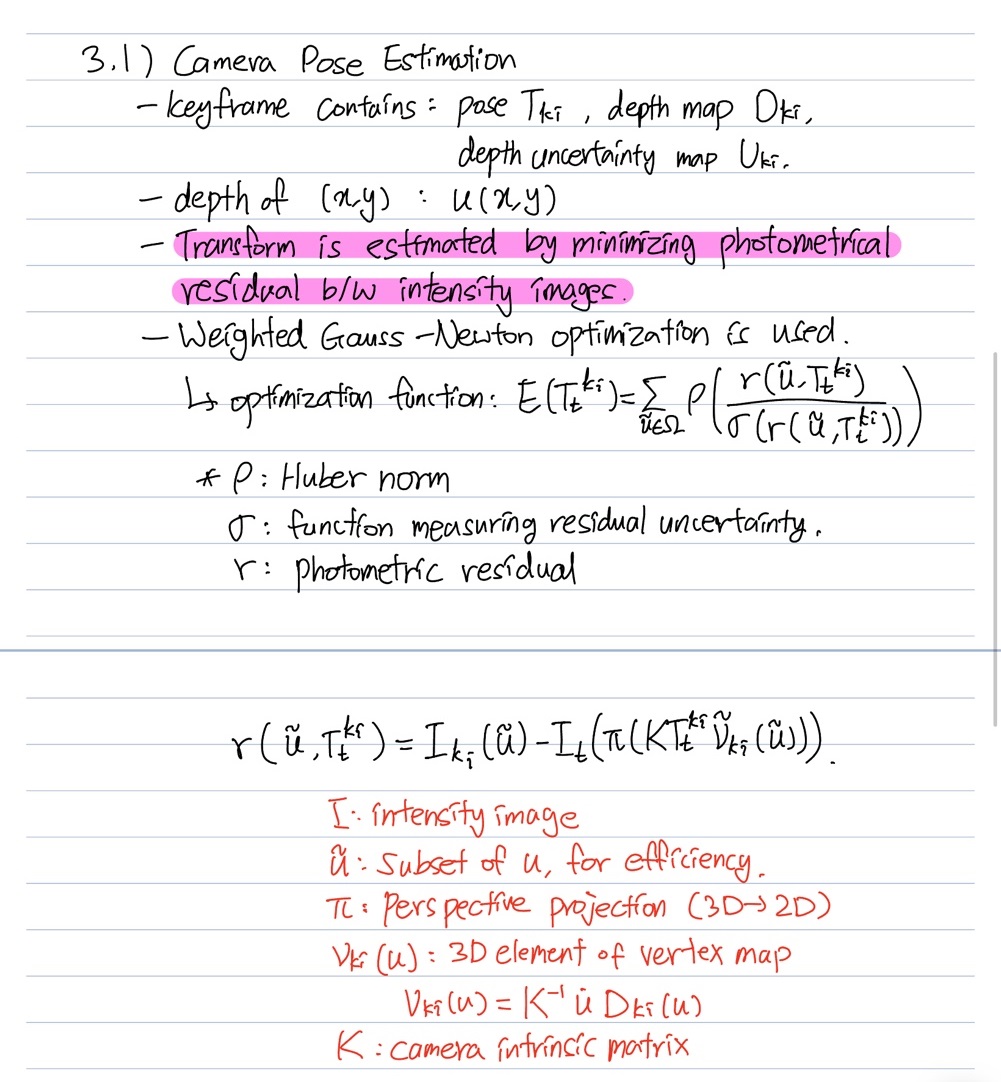 3.1) Camera Pose Estimation
- keyframe contains : pose T_ki , depth map D_ki,
depth uncertainty map U_ki.
- depth of (x,y) : u(x,y)
- Transform is estimated by minimizing photometrical
residual b/w intensity images.
- Weighted Gauss-Newton optimization is used.
↳ optimization function: E(T_t^ki) = Σ_ũ∈Ω ρ( r(ũ,T_t^ki) / σ(r(ũ,T_t^ki)) )
* ρ : Huber norm
σ : function measuring residual uncertainty.
r : photometric residual
r(ũ,T_t^ki) = I_ki(ũ) - I_t(π(KT_t^ki Ṽ_ki(ũ))).
I : intensity image
ũ : subset of u, for efficiency.
π : Perspective projection (3D→2D)
V_ki(u) : 3D element of vertex map
V_ki(u) = K⁻¹ u̇ D_ki(u)
K : camera intrinsic matrix